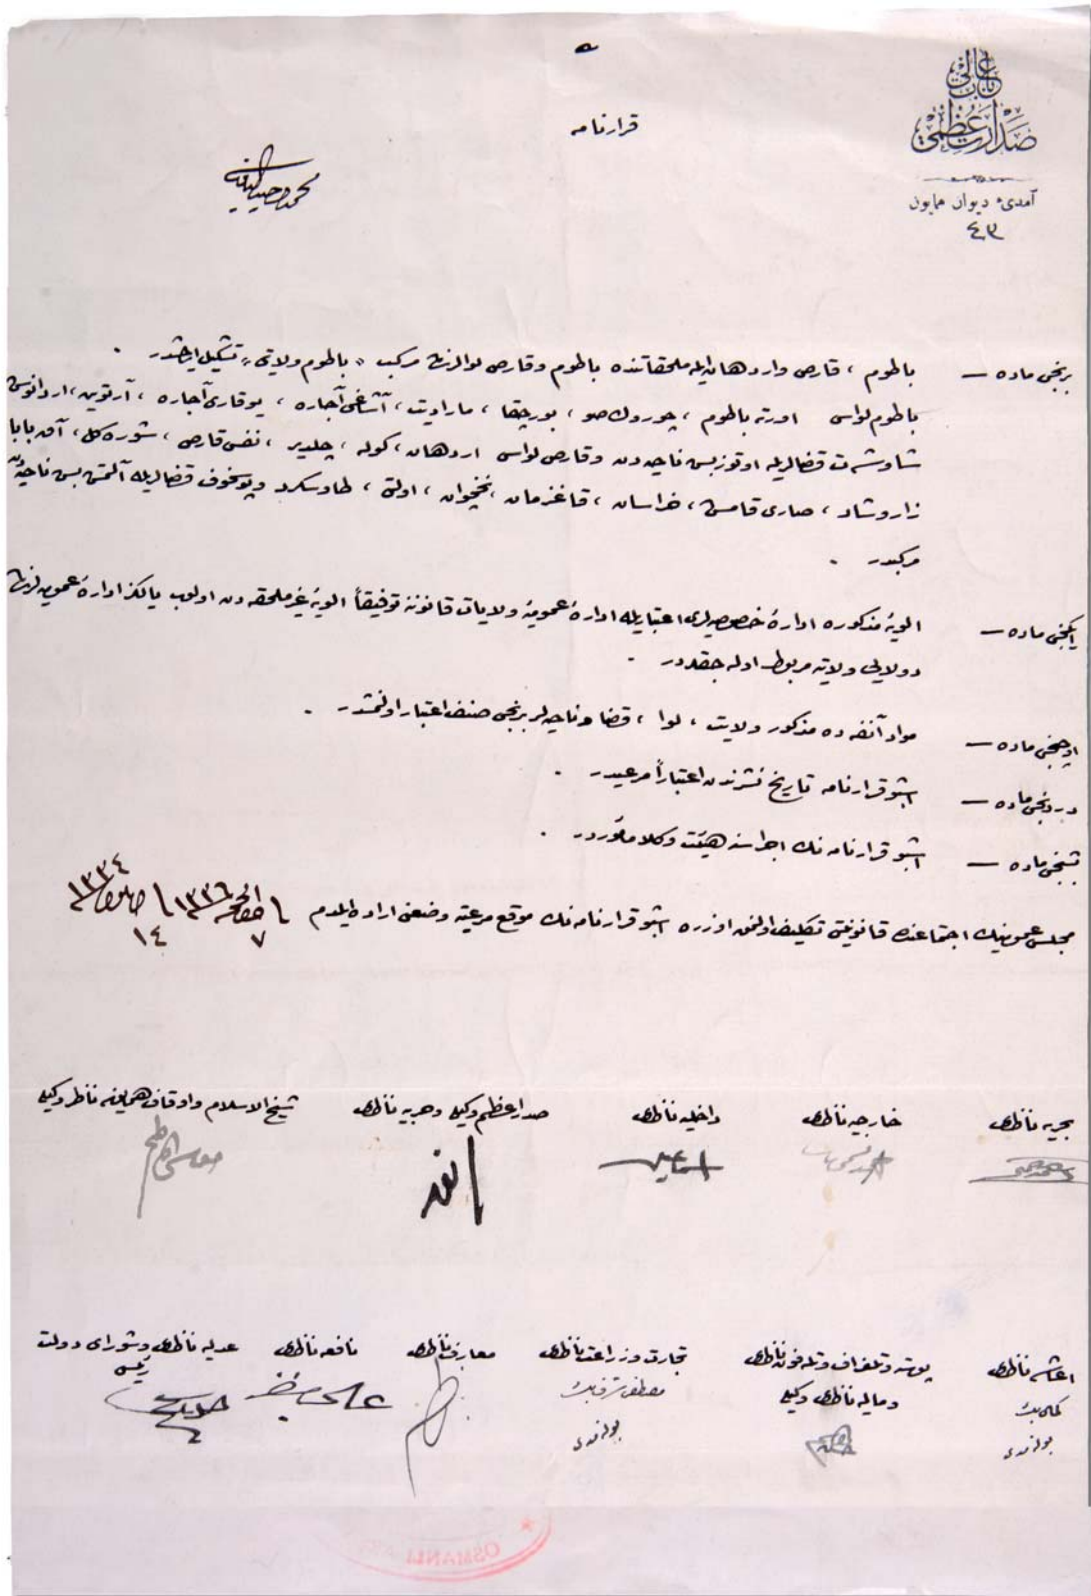 باب عالی
صدارت عظمی
آمدیء دیوان همایون
٤٣
قرارنامه
محمد وحید الدین
برنجی ماده — باطوم ، قارص واردهان ایله ملحقاتنده باطوم وقارص لوالرندن مرکب « باطوم ولایتی » تشکیل ایدلمشدر .
باطوم لواسی اورته باطوم ، چوروك صو ، بورچقا ، مارادیت ، آشاغی آجاره ، یوقاری آجاره ، آرتوین ، اردانوس
شاوشت قضالریله اوتوز بش ناحیه دن وقارص لواسی اردهان ، کوله ، چلدیر ، نفس قارص ، شوره کل ، آق بابا
زاروشاد ، صاری قامش ، خراسان ، قاغزمان ، نخچوان ، اولتی ، طاوسکرد وپوسخوف قضالریله آلتمش بش ناحیه دن
مرکبدر .
ایکنجی ماده — الویهٔ مذکوره ادارهٔ خصوصیه لری اعتباریله ادارهٔ عمومیهٔ ولایات قانوننه توفیقاً الویهٔ غیر ملحقه دن اولوب یالکز ادارهٔ عمومیه لرندن
دولایی ولایته مربوط اوله جقلردر .
اوچنجی ماده — مواد آنفه ده مذکور ولایت ، لوا ، قضا وناحیه لر برنجی صنف اعتبار اولنمشدر .
دردنجی ماده — اشبو قرارنامه تاریخ نشرندن اعتباراً مرعیدر .
بشنجی ماده — اشبو قرارنامه نك اجراسنه هیئت وکلا مأموردر .
مجلس عمومینك اجتماعنده قانونیتی تکلیف اولنمق اوزره اشبو قرارنامه نك موقع مرعیته وضعنی اراده ایلدم
٧ ذی الحجه ١٣٣٦ ١٤ ١٣٣٤
بحریه ناظری خارجیه ناظری داخلیه ناظری صدراعظم وکیلی وحربیه ناظری شیخ الاسلام واوقاف همایون ناظر وکیلی
احمد نسیمی اسماعیل انور موسی کاظم
اعاشه ناظری پوسته وتلغراف وتله فون ناظری تجارت وزراعت ناظری معارف ناظری نافعه ناظری عدلیه ناظری وشورای دولت
ومالیه ناظری وکیلی رئیسی
کمال بك مصطفی شرف بك علی منیف خلیل
بولنمدی بولنمدی
OSMANLI